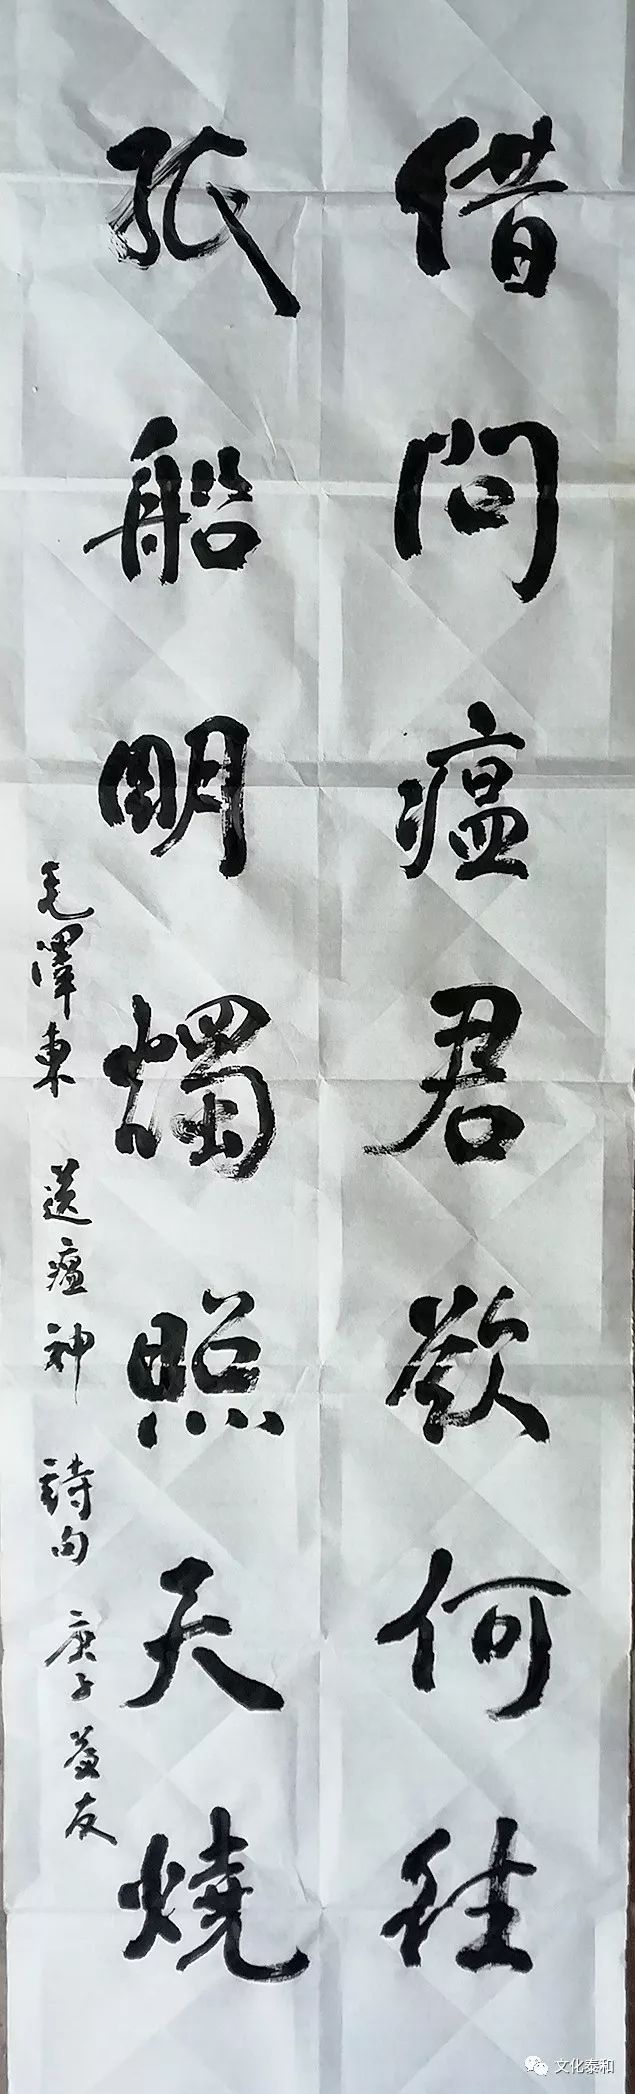 借問瘟君欲何往
紙船明燭照天燒
毛澤東 送瘟神 詩句 庚子 友
文化泰和